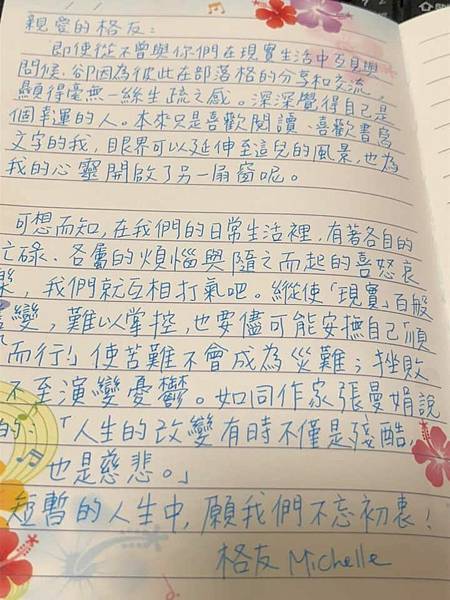 親愛的格友：
即使從不曾與你們在現實生活中互見與
問候，卻因為彼此在部落格的分享和交流，
顯得毫無一絲生疏之感。深深覺得自己是
個幸運的人。本來只是喜歡閱讀、喜歡書寫
文字的我，眼界可以延伸至這兒的風景，也為
我的心靈開啟了另一扇窗呢。
可想而知，在我們的日常生活裡，有著各自的
忙碌、各屬的煩惱與隨之而起的喜怒哀
樂，我們就互相打氣吧。縱使「現實」百般
變，難以掌控，也要儘可能安撫自己「順
而行」使苦難不會成為災難；挫敗
不至演變憂鬱。如同作家張曼娟說
的：「人生的改變有時不僅是殘酷，
也是慈悲。」
短暫的人生中，願我們不忘初衷！
格友 Michelle